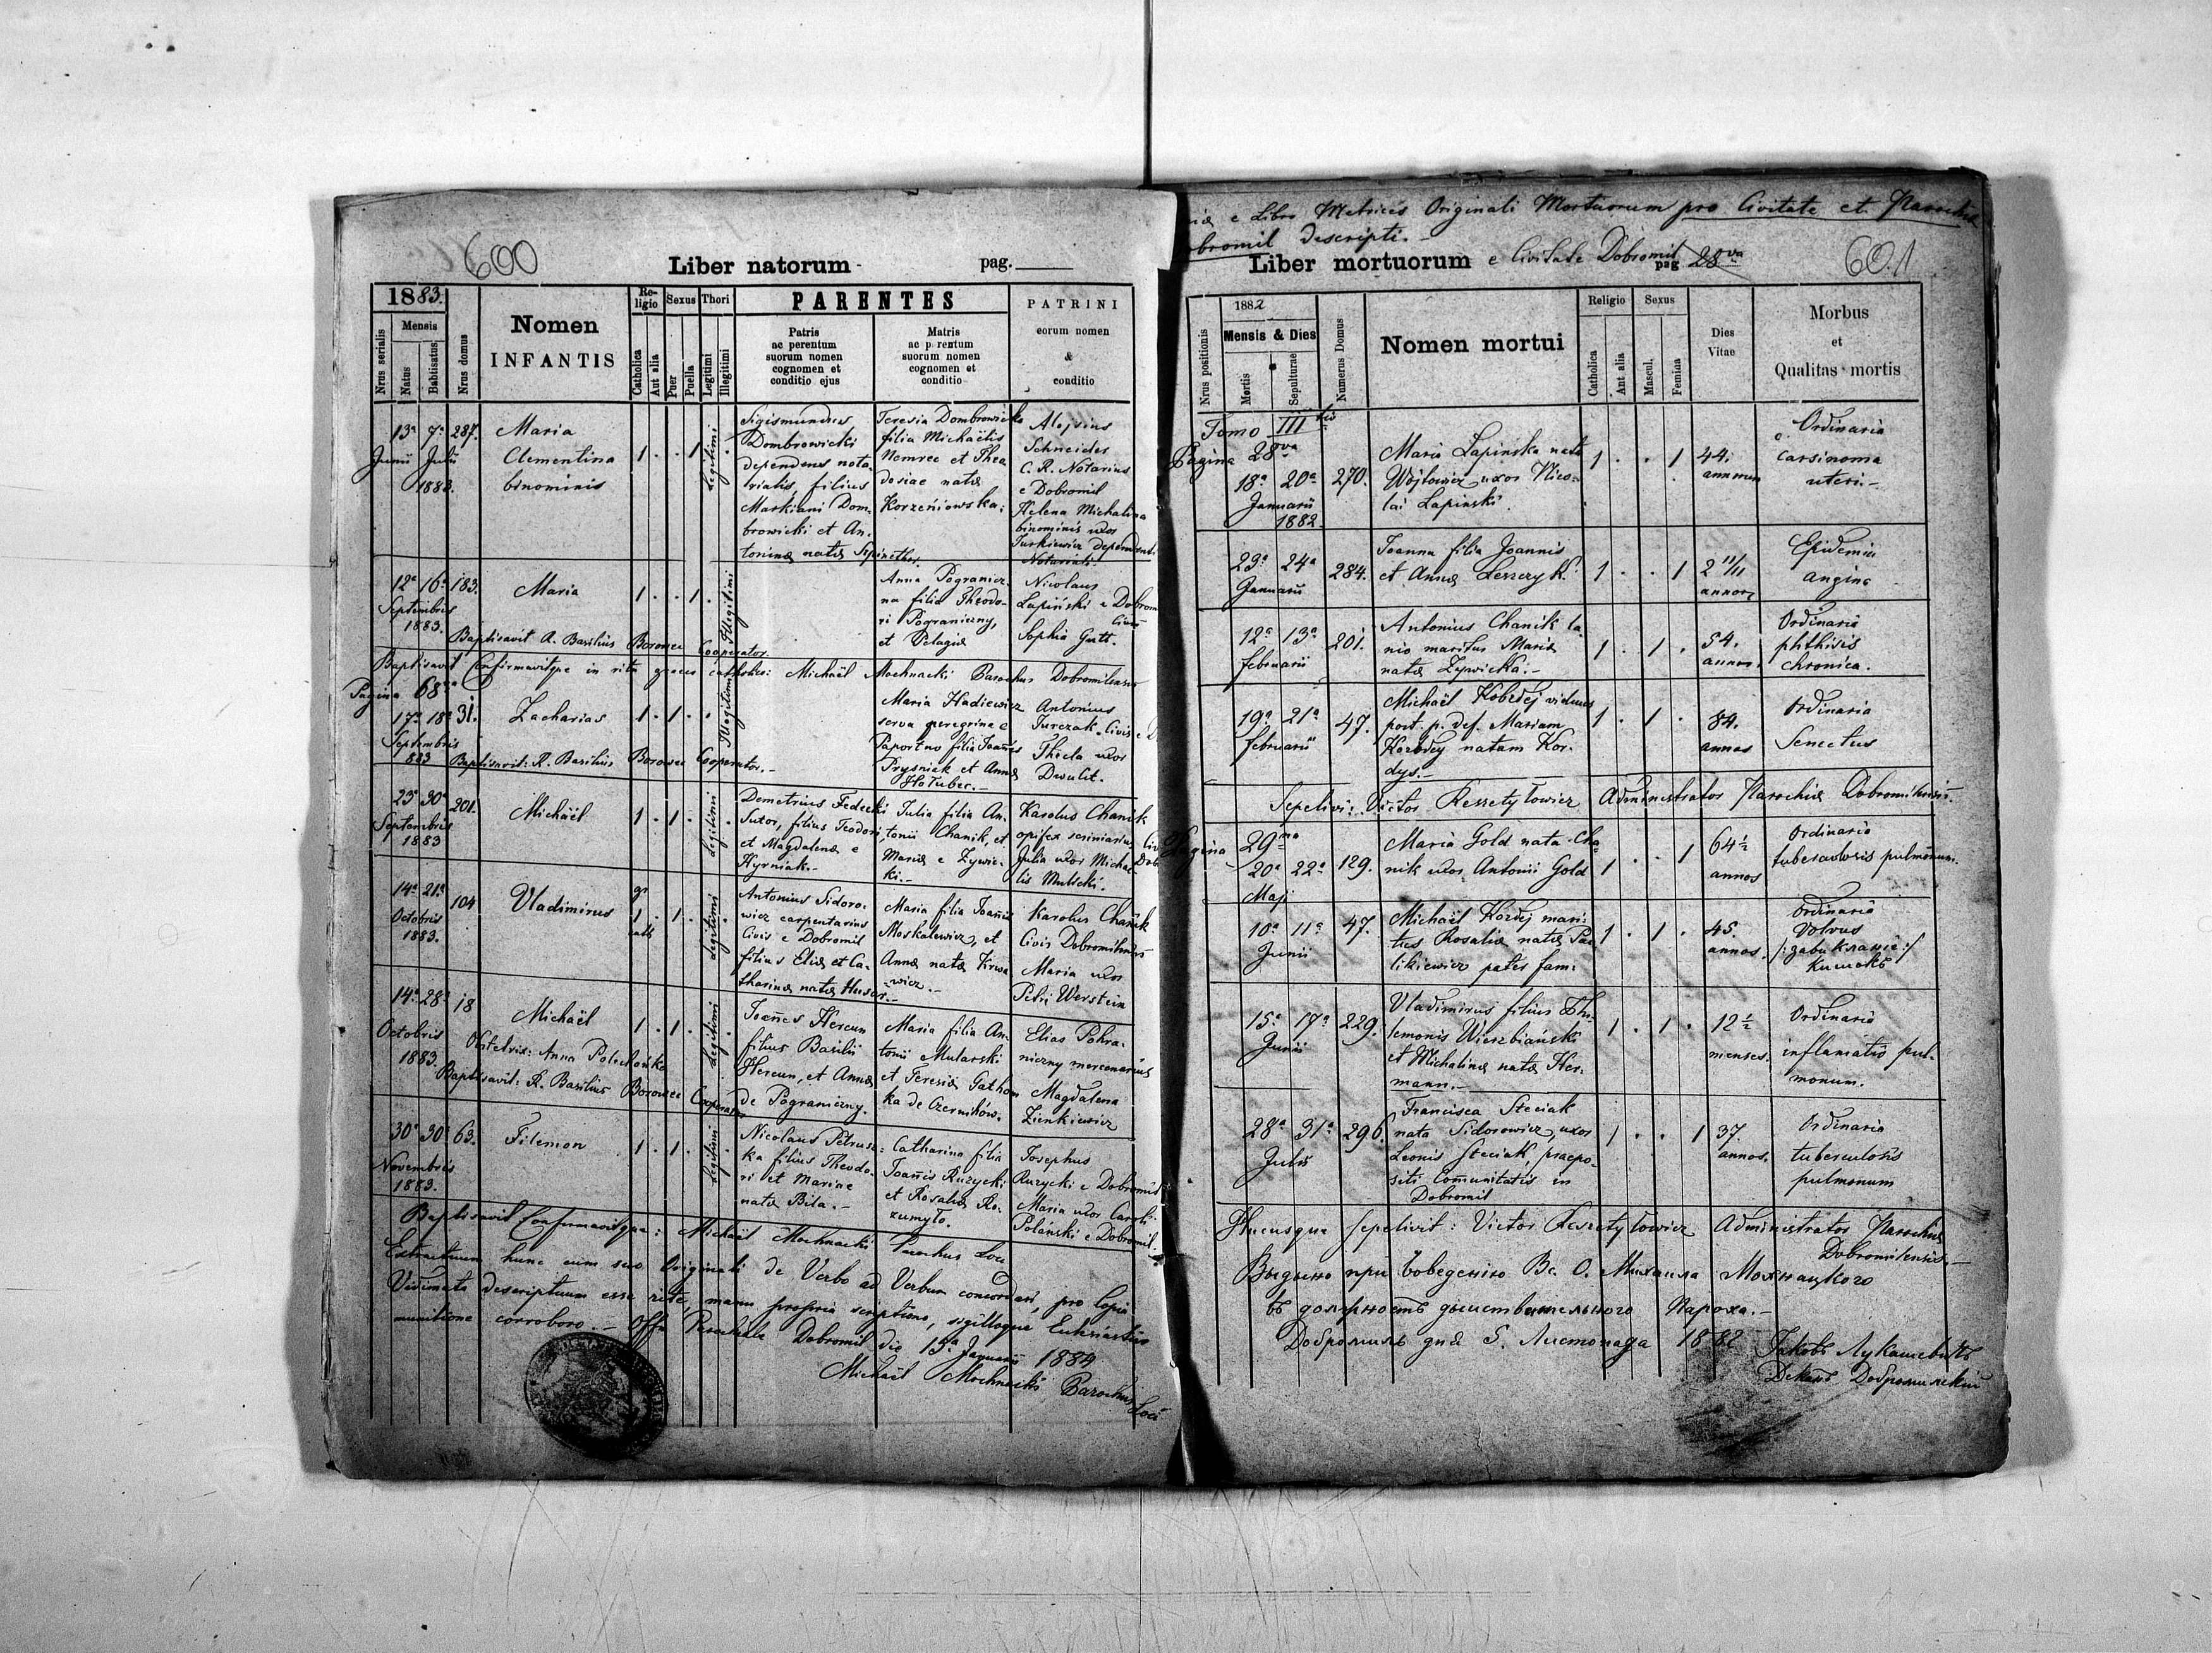 600
Liber natorum
pag.
1883.
Nrus serialis
Mensis
Natus
Babtisatus
Nrus domus
Nomen
INFANTIS
Religio
Catholica
Aut alia
Sexus
Puer
Puella
Thori
Legitimi
Illegitimi
PARENTES
Patris
ac perentum
suorum nomen
cognomen et
conditio ejus
Matris
ac p rentum
suorum nomen
cognomen et
conditio
PATRINI
eorum nomen
&
conditio
13a 7a 287.
Junii Julii
1883.
Maria
Clementina
binominis
1 . . 1
Legitimi
Sigismundus
Dombrowicki
dependens nota-
rialis, filius
Markiani Dom-
browicki et An-
toninæ natæ
Teresia Dombrowicka
filia Michaëlis
Nemrec et Theo
dosiae natæ
Korzeniowska.
Aloysius
Schneider
C. R. Notarius
e Dobromil
Helena Michalina
binominis uxor
Turkiewicz dependent.
Notariali.
12a 16a 183.
Septembris
1883.
Maria
1 . . 1 .
Illegitimi
Anna Pogranicz-
na filia Theodo-
ri Pograniczny,
et Pelagiæ
Nicolaus
Łapiński e Dobrom
Sophia Gutt.
Baptisavit R. Basilius Borowec Cooperator.
Baptisavit Confirmavitque in ritu graeco catholico: Michaël Mochnacki Parochus Dobromilensis
Pagina 68va
17a 18a 31.
Septembris
883
Zacharias
1 . 1 . .
Illegitimi
Maria Hadiewicz
serva peregrina e
Paportno filia Joannis
Prysniak et Annæ
Hołubec.-
Antonius
Jurczak Civis e D
Thecla uxor
Dwulit.
Baptisavit: R. Basilius Borowec Cooperator.-
23a 30a 201.
Septembris
1883
Michaël
1 . 1 .
Legitimi
Demetrius Fedecki
Sutor, filius Teodori,
et Magdalenæ e
Hyrniak.-
Julia filia An-
tonii Chanik, et
Mariæ e Zywic-
ki.-
Karolus Chanik
opifex scriniarius Civ
Julia uxor Michae- Dob
lis Mulicki.
14a 21a 104
Octobris
1883.
Vladimirus
gr
1 . 1 .
cath
Legitimi
Antonius Sidoro-
wicz carpentarius
Civis e Dobromil
filius Eliæ et Ca-
tharinæ natæ Husar.-
Maria filia Joannis
Moskalewicz, et
Annæ natæ
wicz.-
Karolus Chanik
Civis Dobromilensis
Maria uxor
Petri Werstein
14a 28a 18
Octobris
1883.
Michaël
1 . 1 .
Legitimi
Joannes Hercun
filius Basilii
Hercun, et Annæ
de Pograniczny.
Maria filia An-
tonii Mularski
et Teresiæ Gathon
ka de Czerników.
Elias Pohra-
niczny mercenarius
Magdalena
Zienkiewicz
Obstetrix: Anna Polechońka
Baptisavit: R. Basilius Borowec Cooperator
30a 30a 63.
Novembris
1883.
Filemon
1 . 1 .
Legitimi
Nicolaus Petrus-
ka filius Theodo-
ri et Mariae
natæ Bila.-
Catharina filia
Joannis Ruzycki
et Rosaliæ Ro-
zumyło.
Josephus
Ruzycki e Dobromil
Maria uxor Caroli
Polański e Dobromil.
Baptisavit Confirmavitque: Michaël Mochnacki Parochus Loci
Extractum hunc cum suo Originali de Verbo ad Verbum concordari, pro Copia
Vidimata descriptum esse rite, manu propria scriptione, sigilloque Ecclesiastico
munitione corroboro.- Offm Parochiale Dobromil die 15a Januarii 1884
Michaël Mochnacki Parochus
Loci
e Libro Metrices Originali Mortuorum pro Civitate et Parochia
Dobromil descripti.-
Liber mortuorum e Civitate Dobromil pag 28va
601
Nrus positionis
1882
Mensis & Dies
Mortis
Sepulturae
Numerus Domus
Nomen mortui
Religio
Catholica
Aut alia
Sexus
Mascul.
Femina
Dies
Vitae
Morbus
et
Qualitas mortis
Tomo III
Pagina 28va
18a 20a 270.
Januarii
1882
Maria Lapinska nata
Wojtowicz uxor Nico-
lai Lapinski.
1 . . 1
44.
annorum
Ordinaria
carsinoma
uteri-
23a 24a 284.
Januarii
Joanna filia Joannis
et Annæ Leszczyk.
1 . . 1
2 11/11
annor,
Epidemia
angina
12a 13a 201.
Februarii
Antonius Chanik la-
nio maritus Mariæ
natæ Zywicka.-
1 . 1 .
54.
annos.
Ordinaria
phthisis
chronica.
19a 21a 47.
Februarii
Michaël viduus
post p. def. Mariam
natam Kor-
dys.-
1 . 1 .
84.
annos
Ordinaria
Senectus
Sepelivi: Victor Reszetyłowicz Administrator Parochiæ Dobromilensis.
Pagina 29na
20a 22a 129.
Maji
Maria Gold nata Cha-
nik uxor Antonii Gold
1 . . 1
64 1/2
annos
Ordinaria
tuberculosis pulmonum.
10a 11a 47.
Junii
Michaël mari-
tus Rosaliæ natæ Pau
likiewicz pater fam:
1 . 1 .
45.
annos.
Ordinaria
Volvus
/:завикланіе:/
Кишокъ
15a 17a 229.
Junii
Vladimirus filius Phi-
lemonis Wierzbiański
et Michalinæ natæ Her-
mann.-
1 . 1 .
12 1/2
menses.
Ordinaria
inflamatio pul-
monum.
28a 31a 296.
Julii
Francisca Steciak
nata Sidorowicz, uxor
Leonis Steciak, praepo-
siti Comunitatis in
Dobromil
1 . . 1
37.
annos.
Ordinaria
tuberculosis
pulmonum
Hucusque sepelivit: Victor Reszetyłowicz Administrator Parochiæ
Dobromilensis.-
Видѣно при воведенію Вс. О. Михаила Мохнацкого
въ должность дѣйствительного Пароха.-
Добромиль дня 5. Листопада 1882
Яковъ Лукашевичъ
Деканъ Добромильскій